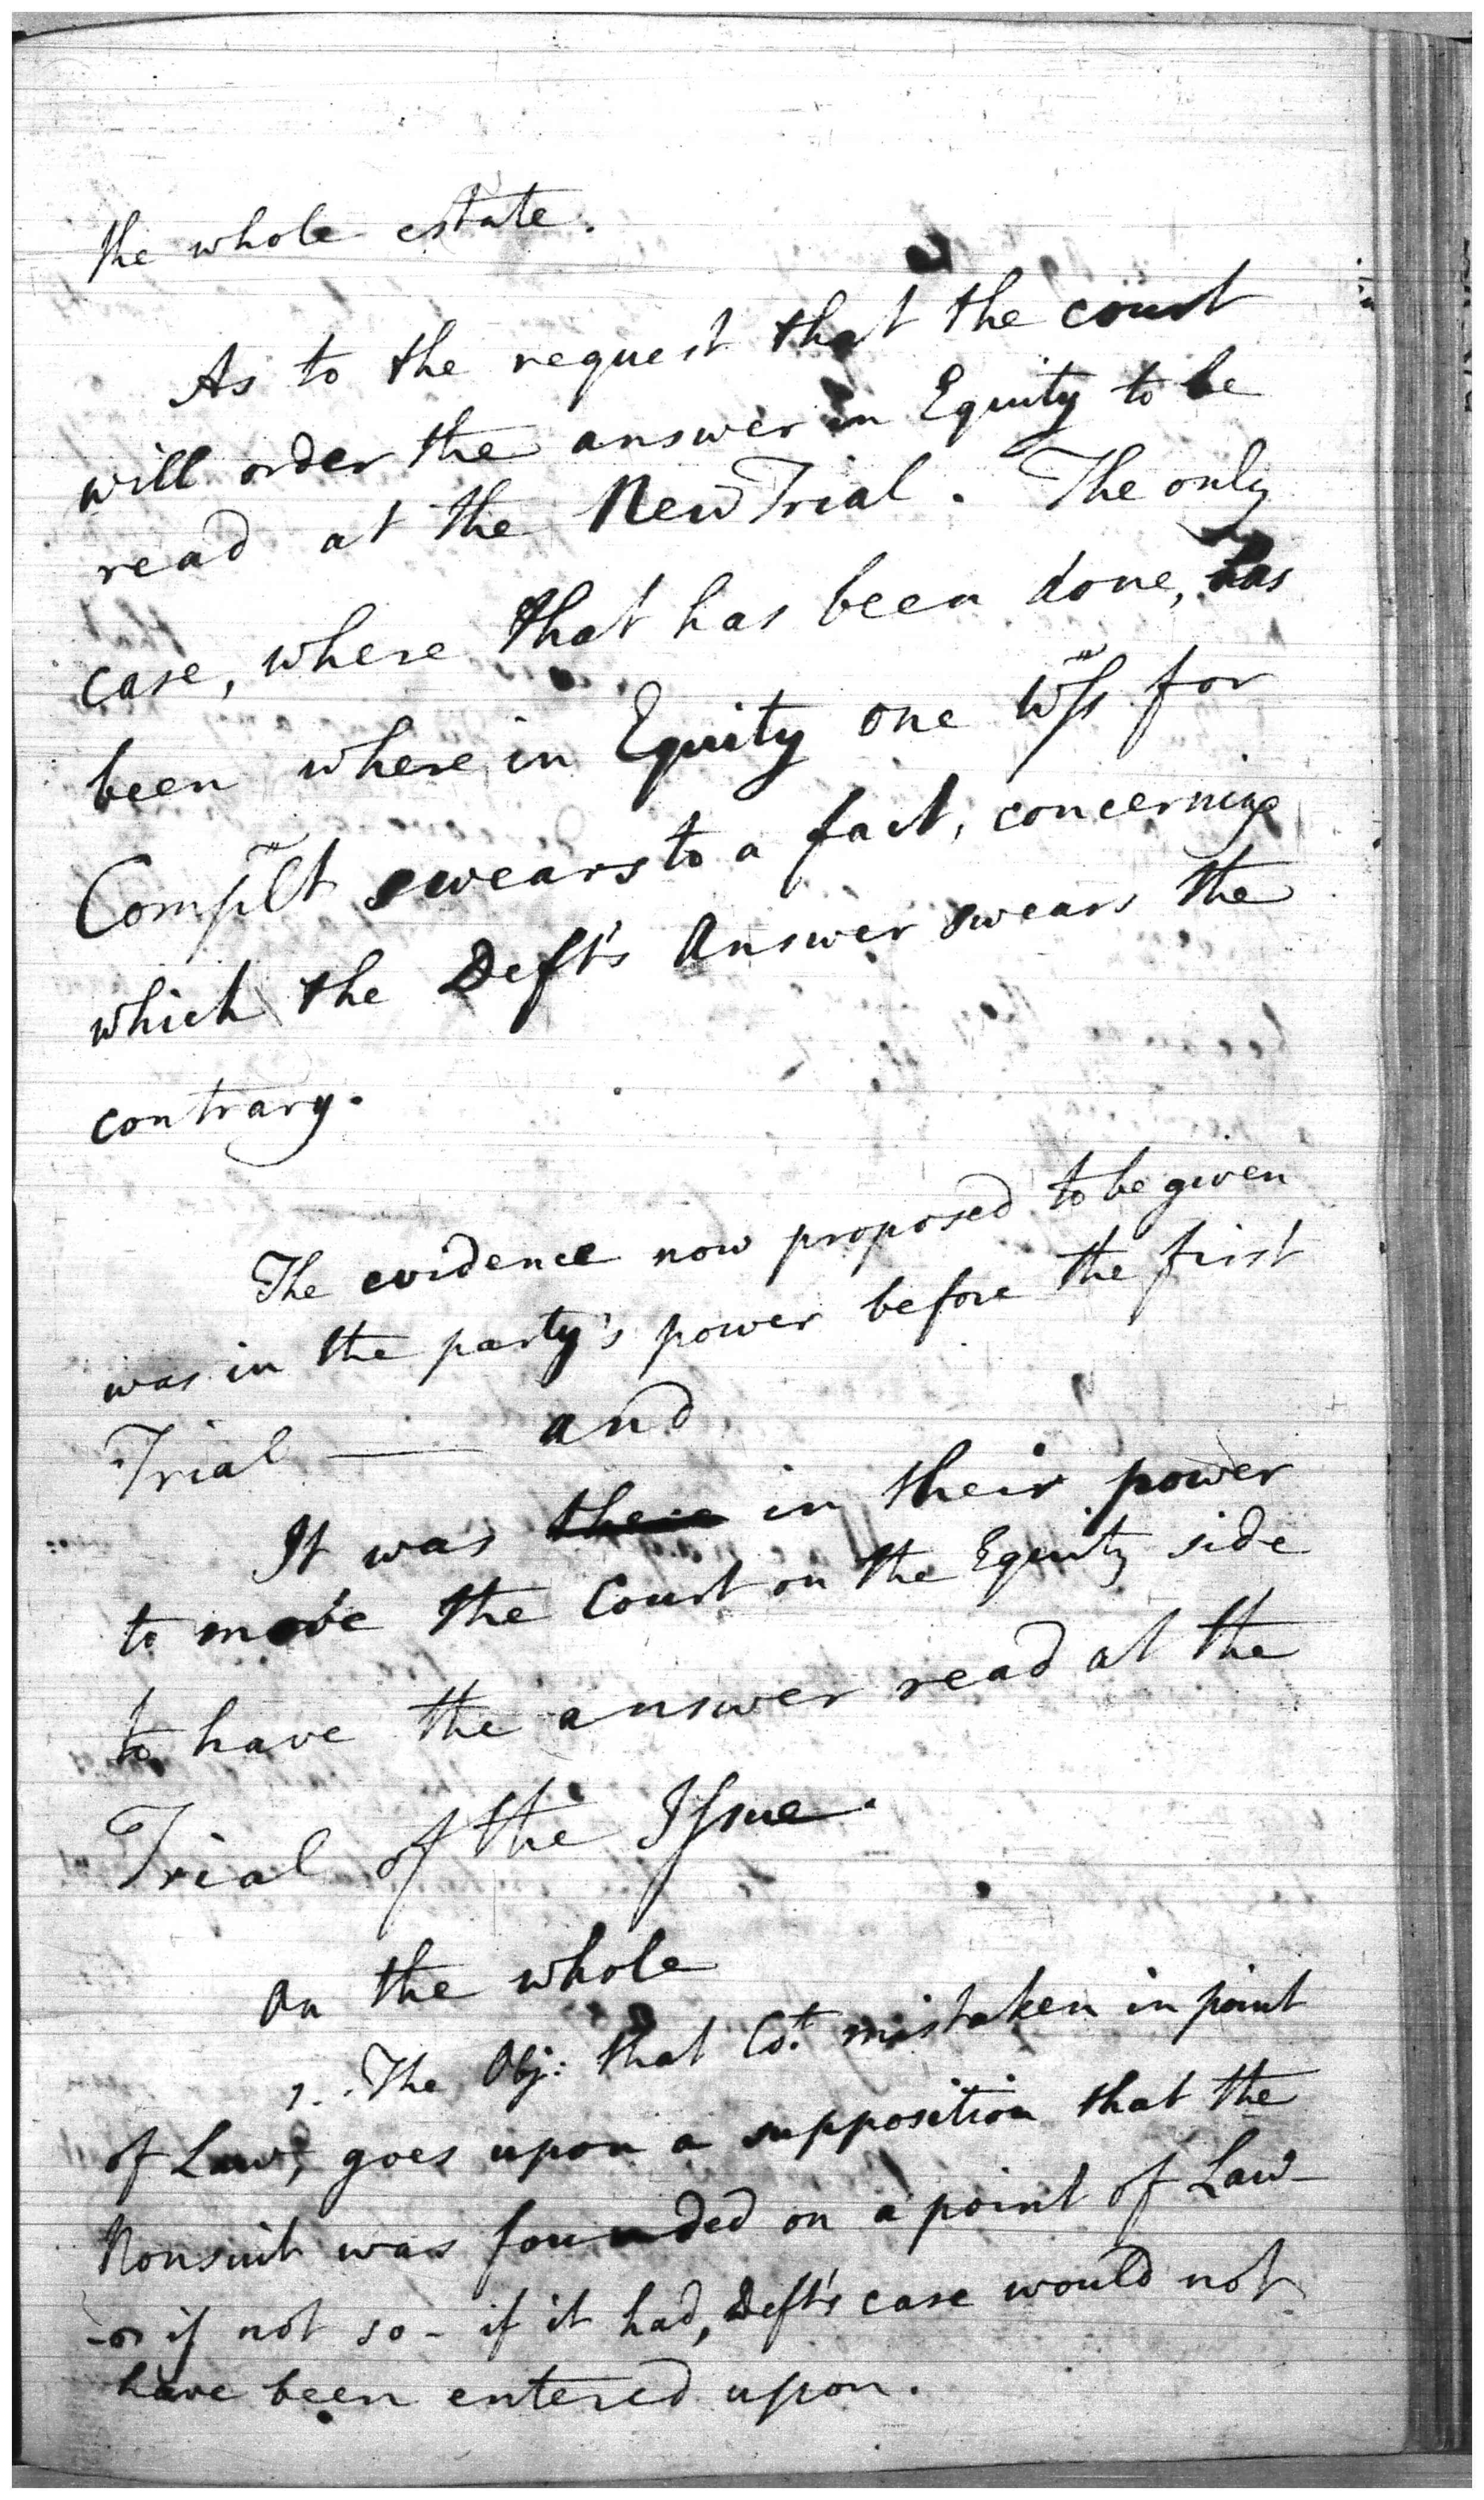 the whole estate.
As to the request that the court
will order the answer in Equity to be
read at the New Trial. The only
case, where that has been done, has
been where in Equity one Wss for
Complt swears to a fact, concerning
which the Deft's Answer swears the
contrary.
The evidence now proposed to be given
was in the party's power before the first
Trial — and
It was there in their power
to move the Court on the Equity side
to have the answer read at the
Trial of the Issue.
On the whole
1. The Obj: that Ct. mistaken in point
of Law, goes upon a supposition that the
Nonsuit was founded on a point of Law
if not so - if it had, Deft's case would not
have been entered upon.